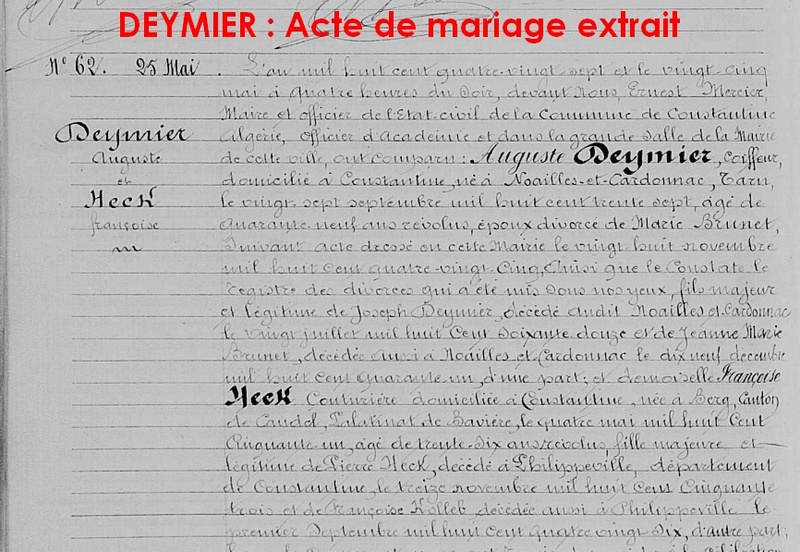 DEYMIER : Acte de mariage extrait
N° 62. 25 Mai.
Deymier
Auguste
et
Heck
françoise
L'an mil huit cent quatre-vingt sept et le vingt-cinq
mai à quatre heures du soir, devant nous, Ernest Mercier,
Maire et officier de l'Etat civil de la Commune de Constantine
Algérie, Officier d'Académie et dans la grande salle de la Mairie
de cette ville, ont comparu : Auguste Deymier, coiffeur,
domicilié à Constantine, né à Noailles-et-Cardonnac, Tarn,
le vingt-sept septembre mil huit cent trente sept, âgé de
quarante neuf ans révolus, époux divorcé de Marie Brunet,
suivant acte dressé en cette Mairie le vingt huit novembre
mil huit cent quatre-vingt cinq, Ainsi que le constate le
registre des divorces qui a été mis sous nos yeux, fils majeur
et légitime de Joseph Deymier, décédé audit Noailles et-Cardonnac
le vingt juillet mil huit cent soixante douze et de Jeanne Marie
Brunet, décédée aussi à Noailles-et-Cardonnac le dix neuf décembre
mil huit cent quarante un, d'une part ; et demoiselle Françoise
Heck Couturière domiciliée à Constantine, née à Berg, Canton
de Candel, Palatinat de Bavière, le quatre mai mil huit cent
cinquante un, âgé de trente-six ans révolus, fille majeure et
légitime de Pierre Heck, décédé à Philippeville, département
de Constantine, le treize novembre mil huit cent cinquante
trois et de Françoise Kolleb décédée aussi à Philippeville le
premier septembre mil huit cent quatre vingt six, d'autre part ;